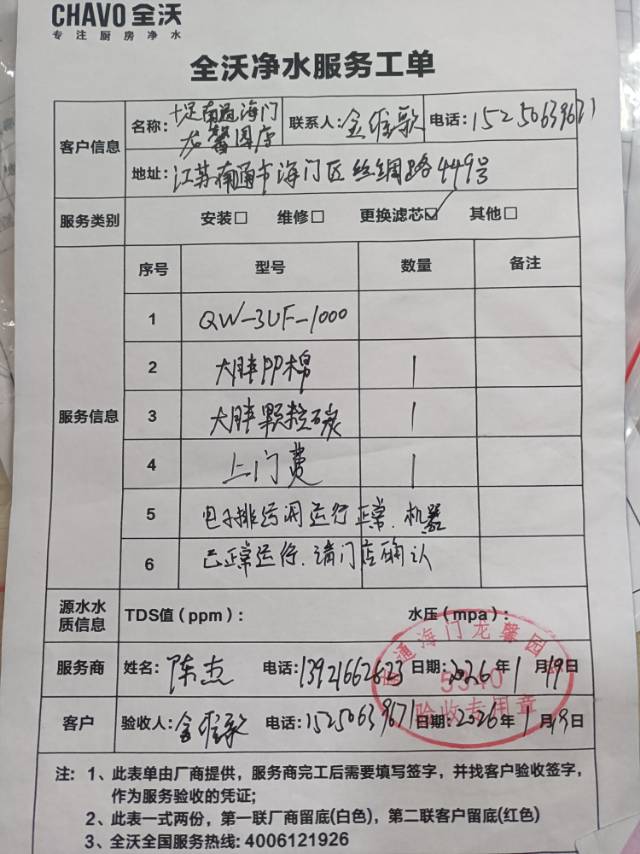 CHAVO 全沃
专注厨房净水
全沃净水服务工单
客户信息
名称：十足南通海门龙馨园店
联系人：金维歌
电话：15250639671
地址：江苏南通市海门区丝绸路449号
服务类别
安装□ 维修□ 更换滤芯☑ 其他□
服务信息
序号 型号 数量 备注
1 QW-3UF-1000
2 大胖PP棉 1
3 大胖颗粒碳 1
4 上门费 1
5 电子排污阀运行正常.机器
6 已正常运行.请门店确认
源水水质信息
TDS值（ppm）： 水压（mpa）：
服务商 姓名：陈杰 电话：13921662623 日期：2026年1月19日
客户 验收人：金维歌 电话：15250639671 日期：2026年1月19日
南通海门龙馨园
5340
验收专用章
注：1、此表单由厂商提供，服务商完工后需要填写签字，并找客户验收签字，
作为服务验收的凭证;
2、此表一式两份，第一联厂商留底(白色)，第二联客户留底(红色)
3、全沃全国服务热线: 4006121926